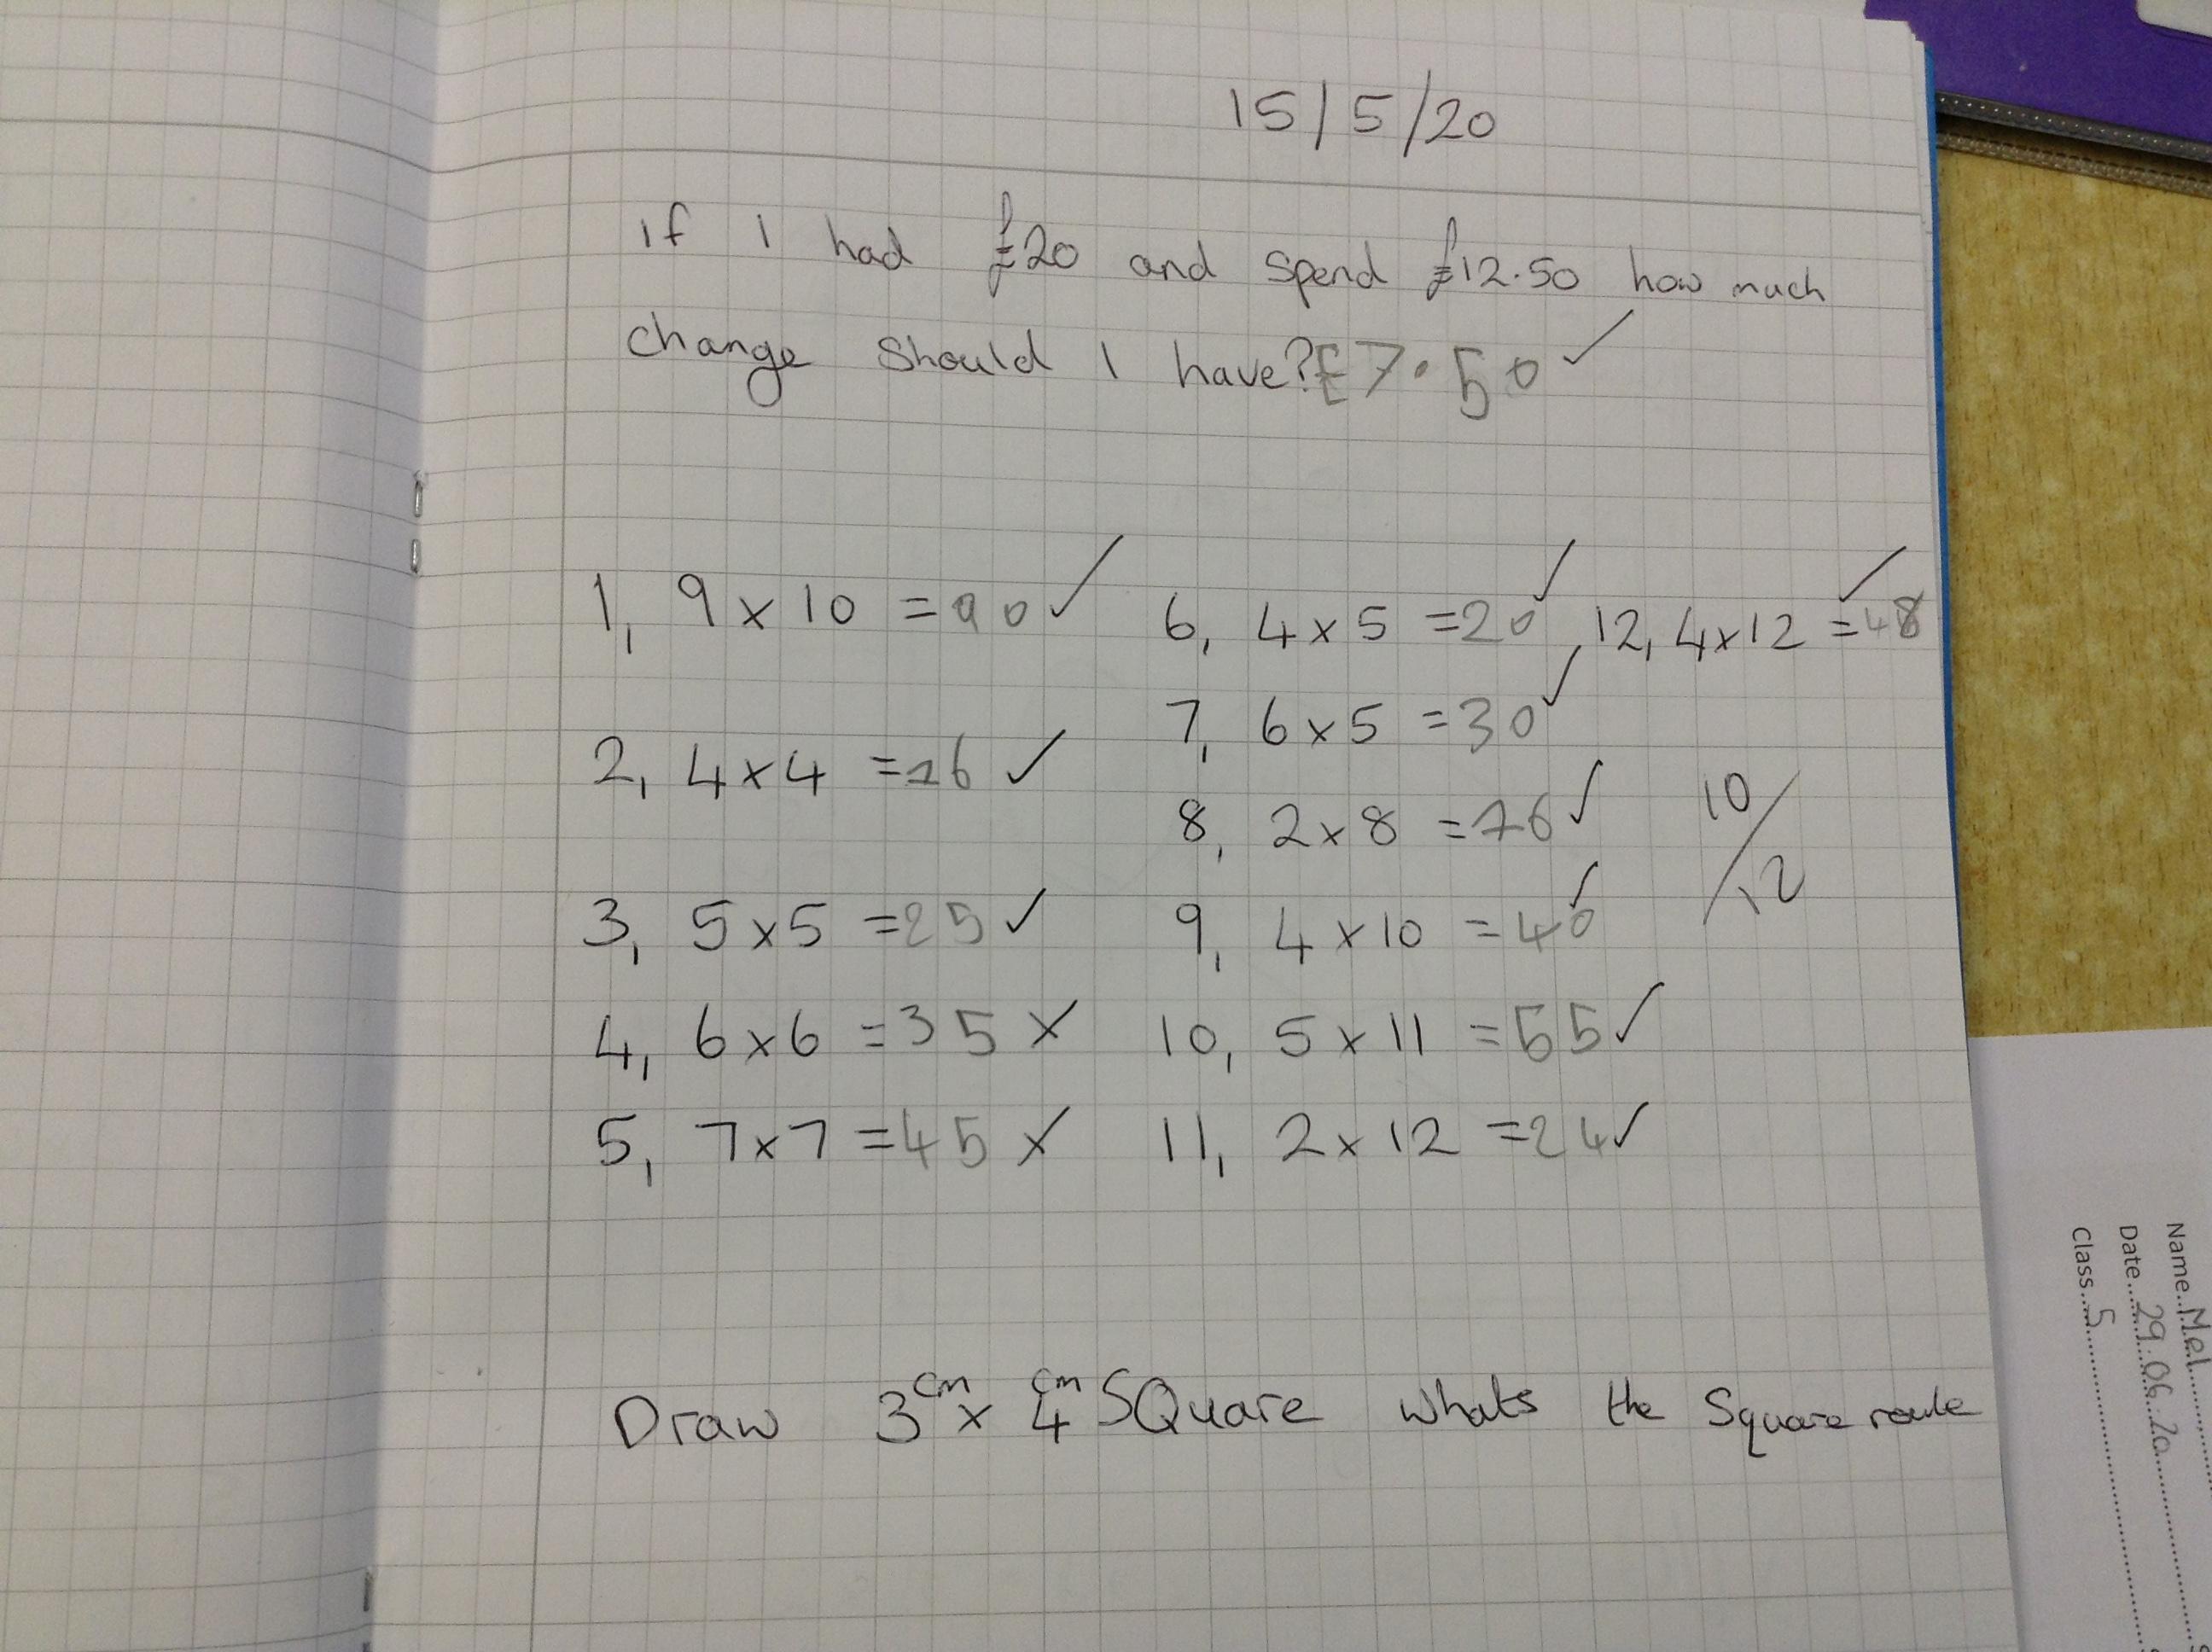 15/5/20
If I had £20 and spend £12.50 how much
change should I have? £7.50 ✓
1, 9 x 10 = 90 ✓
2, 4 x 4 = 16 ✓
3, 5 x 5 = 25 ✓
4, 6 x 6 = 35 x
5, 7 x 7 = 45 x
6, 4 x 5 = 20 ✓
7, 6 x 5 = 30 ✓
8, 2 x 8 = 16 ✓
9, 4 x 10 = 40 ✓
10, 5 x 11 = 55 ✓
11, 2 x 12 = 24 ✓
12, 4 x 12 = 48 ✓
10/12
Draw 3cm x 4cm SQuare whats the Square route
Name..Mel
Date..29.06.20
Class..5